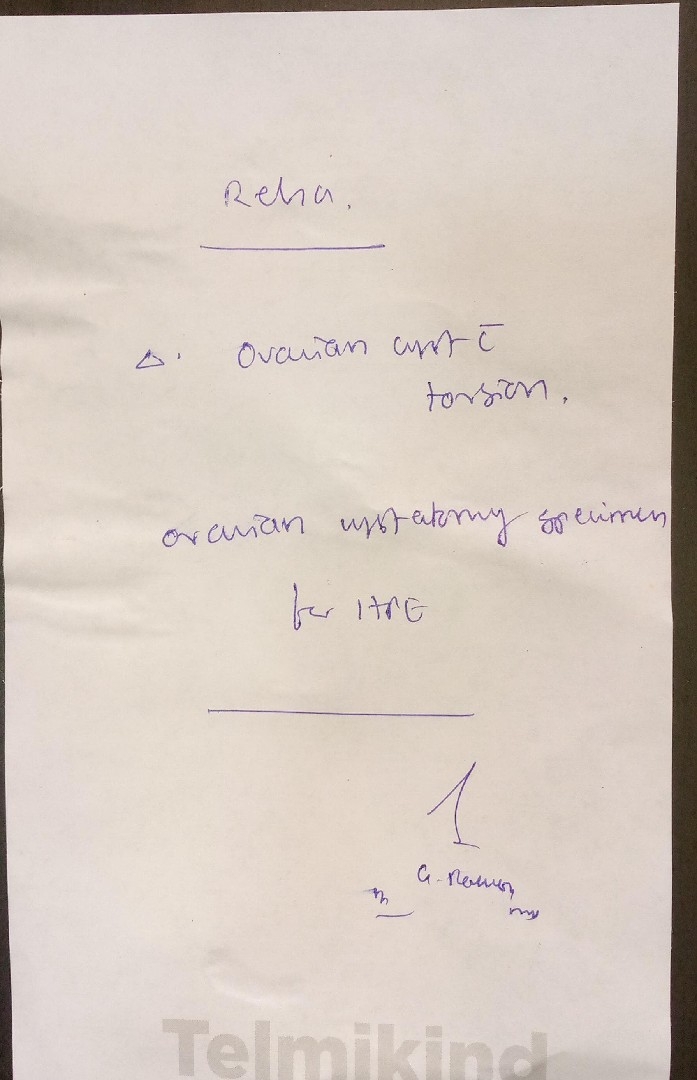 Reha.
Δ. Ovarian cyst c̄
torsion.
ovarian cystectomy specimen
for HPE
Telmikind